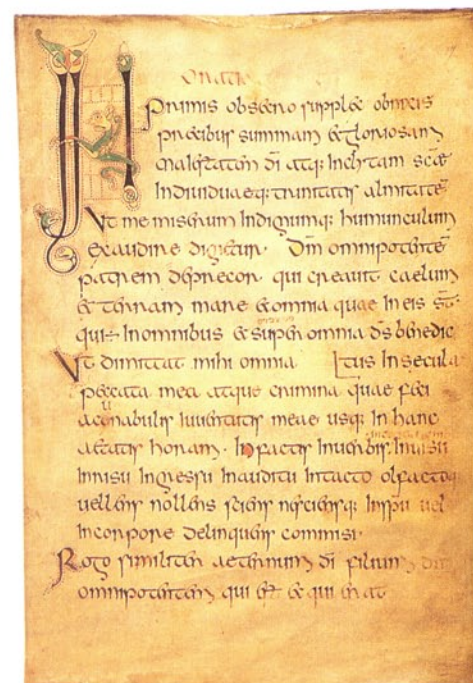 Oratio
INprimis obsecro supplex obnixis
precibus summam & gloriosam
maiestatem dī atq; Inclitam scæ
Indiuiduaeq; trinitatis almitatē
Vt me miserum Indignumq; humunculum
exaudire dignetur. Dm̄ omnipotentē
patrem deprecor qui creauit caelum
& terram mare & omnia quae In eis st̄
qui ÷ In omnibus & super omnia d̄s benedic
Vt dimittat mihi omnia tus In secula
peccata mea atque crimina quae feci
a cunabulis Iuuentutis meae usq; In hanc
aetatis horam. In factis In uerbis. In uisu
In risu In gressu In auditu In tacto olfactoq;
uellens nollens sciens nesciensq; In sp̄u uel
In corpore delinquens commisi.
Rogo similiter aeternum dī filium dm̄
omnipotentem qui & qui erat